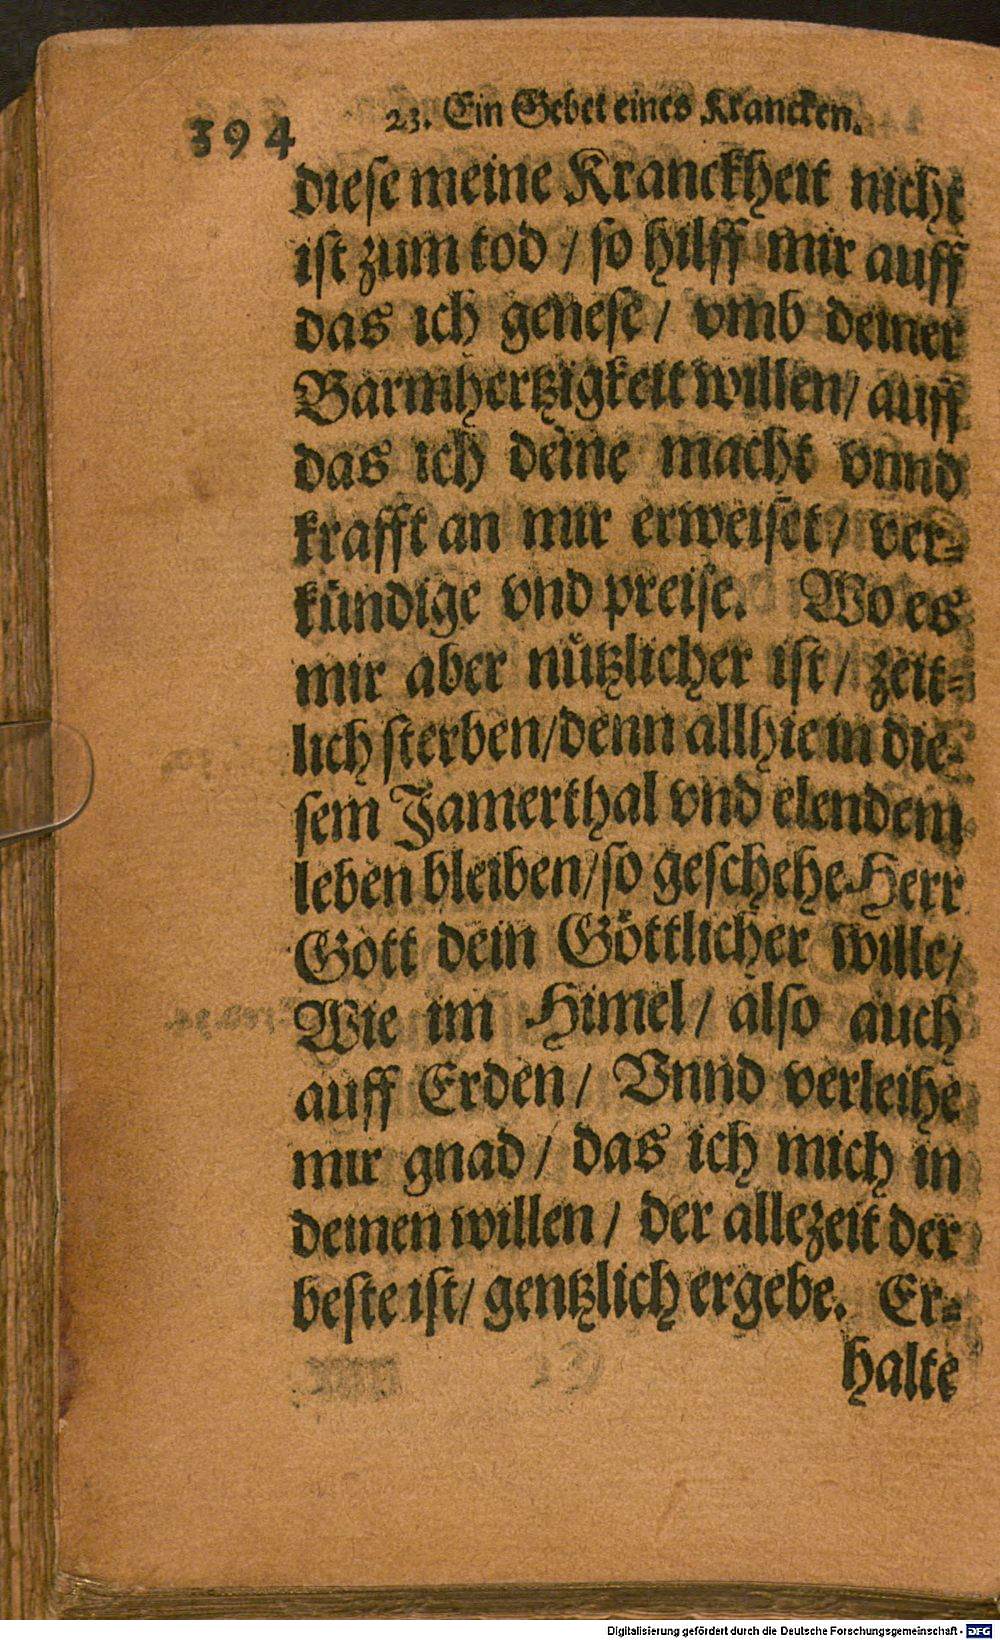 394 23. Ein Gebet eines Krancken.
dieſe meine Kranckheit nicht
iſt zum tod / ſo hilff mir auff
das ich geneſe / vmb deiner
Barmhertzigkeit willen / auff
das ich deine macht vnnd
krafft an mir erweiſet / ver⸗
kuͤndige vnd preiſe. Wo es
mir aber nuͤtzlicher iſt / zeit⸗
lich ſterben / denn allhie in die⸗
ſem Jamerthal vnd elendem
leben bleiben / ſo geſchehe Herr
Gott dein Goͤttlicher wille /
Wie im Himel / alſo auch
auff Erden / Vnnd verleihe
mir gnad / das ich mich in
deinen willen / der allezeit der
beſte iſt / gentzlich ergebe. Er⸗
halte
Digitalisierung gefördert durch die Deutsche Forschungsgemeinschaft - DFG